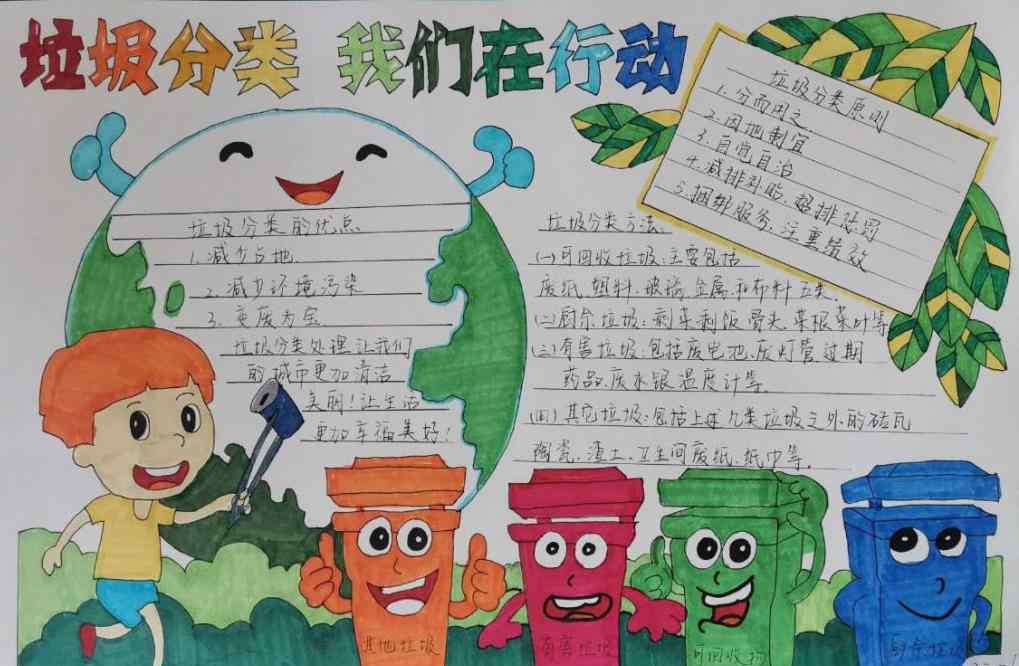 垃圾分类 我们在行动
垃圾分类原则
1.分而用之.
2.因地制宜
3.自觉自治
4.减排补贴,超排惩罚
5.捆绑服务,注重绩效
垃圾分类的优点
1.减少占地.
2.减少环境污染
3.变废为宝.
垃圾分类处理让我们
的城市更加清洁
美丽!让生活
更加幸福美好!
垃圾分类方法.
(一)可回收垃圾:主要包括
废纸、塑料、玻璃、金属和布料五类.
(二)厨余垃圾:剩菜剩饭骨头、菜根菜叶等
(三)有害垃圾:包括废电池、废灯管过期
药品、废水银温度计等.
(四)其它垃圾:包括上述几类垃圾之外的砖瓦
陶瓷、渣土、卫生间废纸、纸巾等.
其他垃圾
有害垃圾
可回收物
厨余垃圾